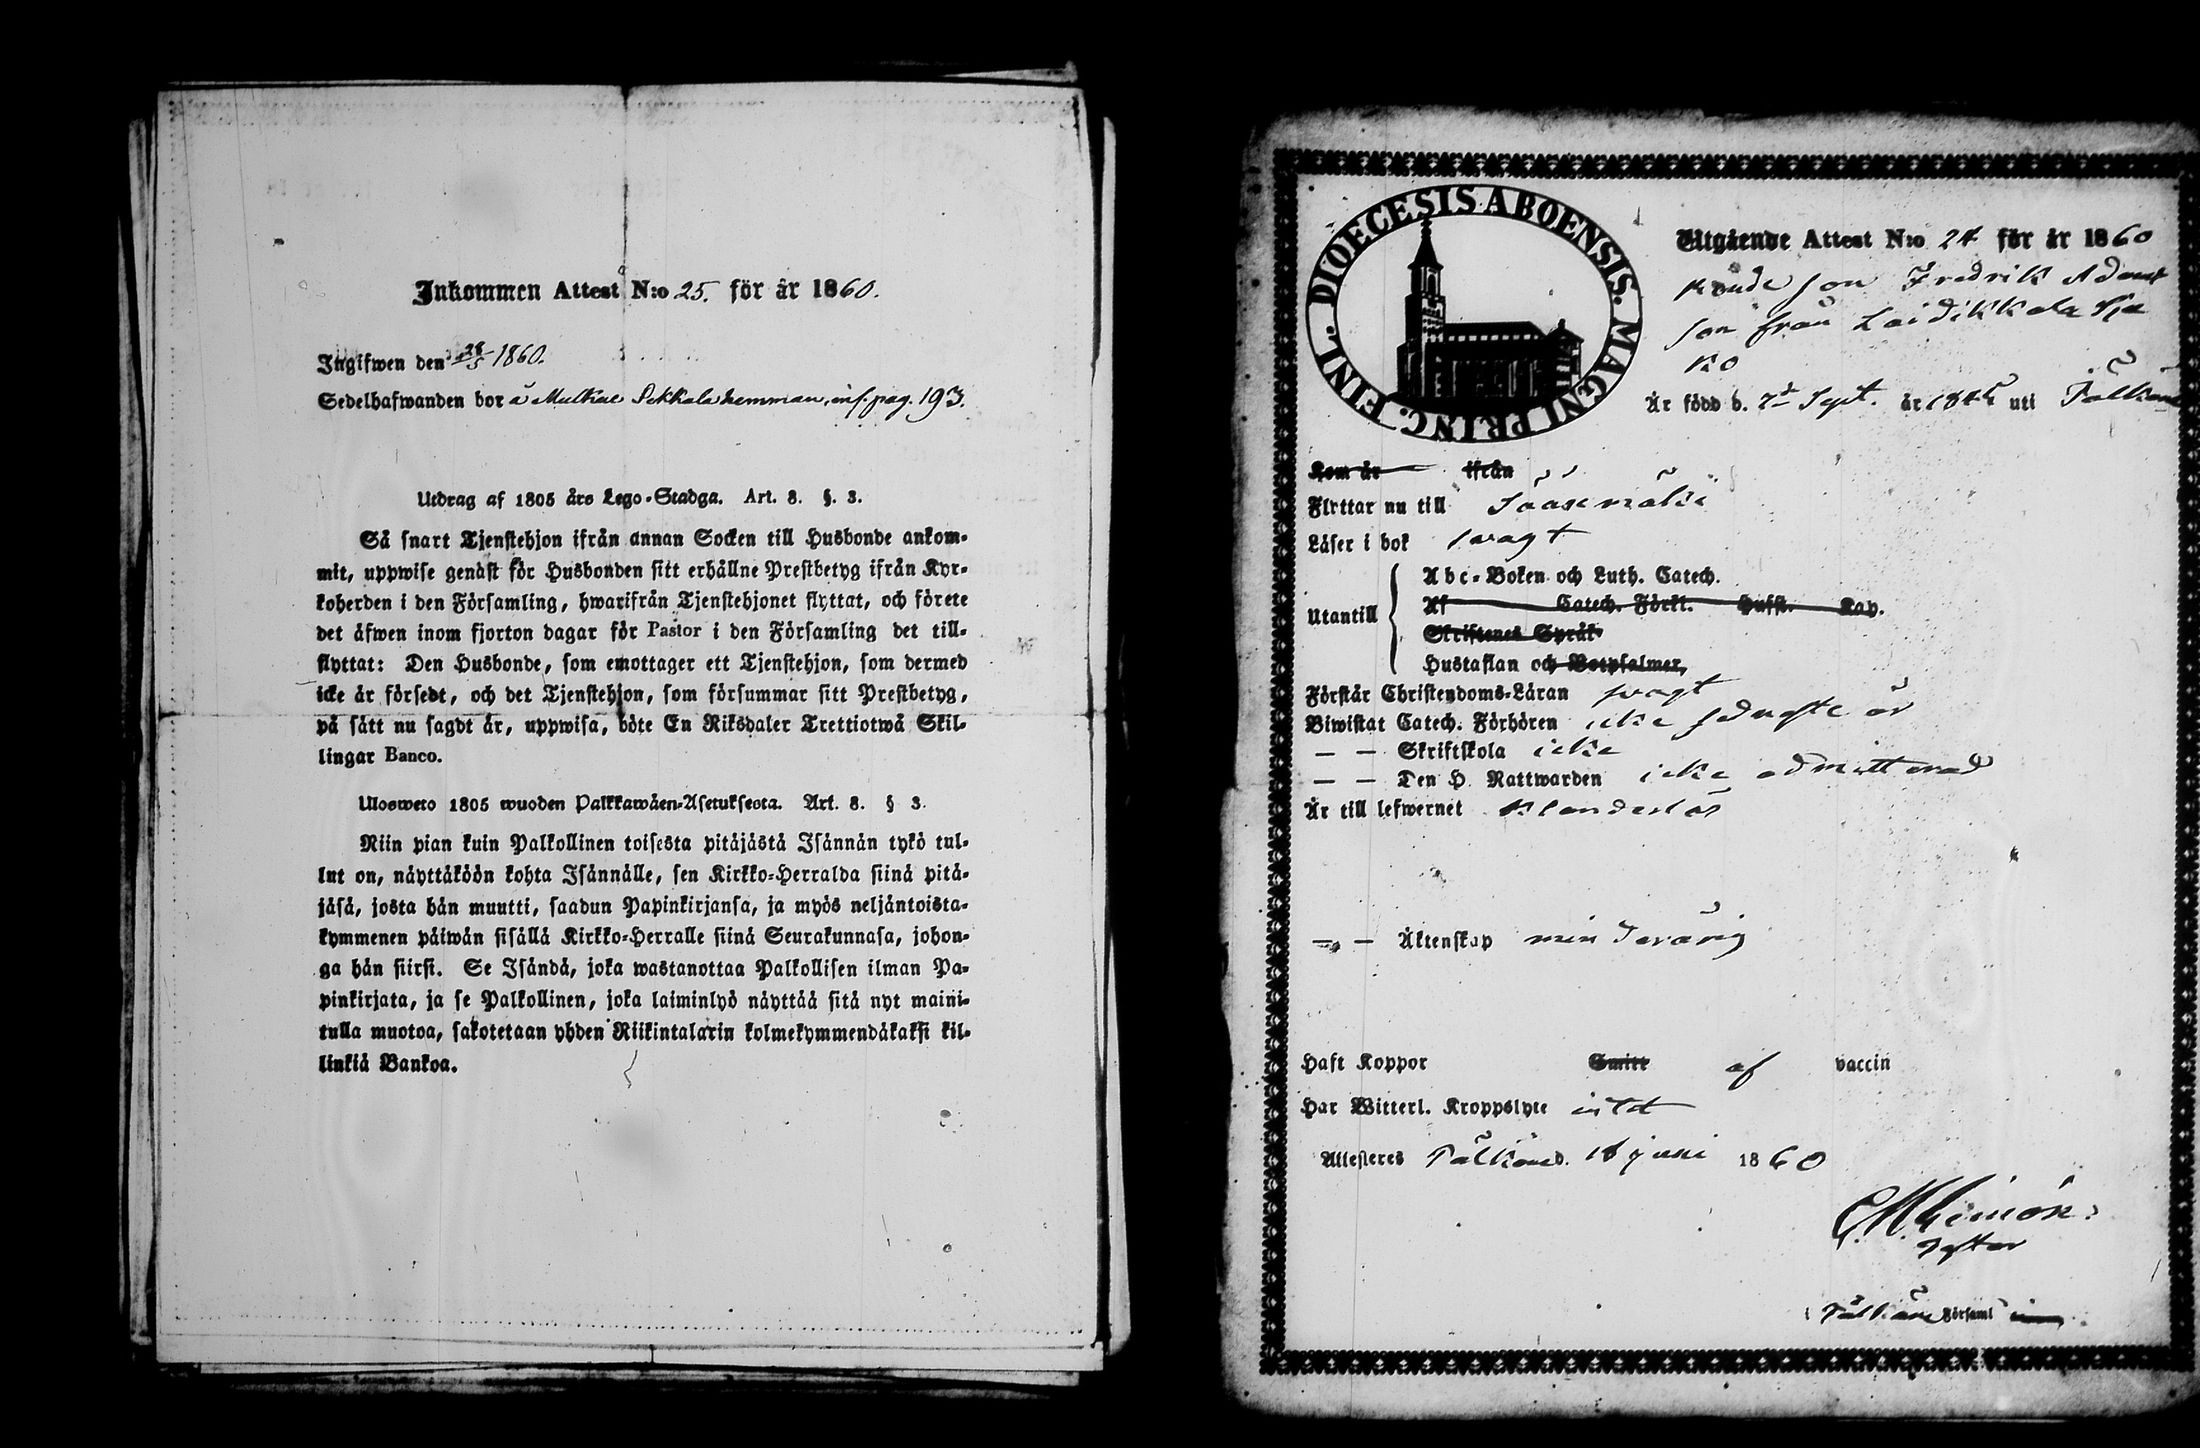 Inkommen Attest N:o 25. för år 1860.
Ingifwen den 28/5 1860.
Sedelhafwanden bor å Mulkae Sekkala hemman, inf. pag. 193.
Utdrag af 1805 års Lego-Stadga. Art. 8. §. 3.
Så snart Tjenstehjon ifrån annan Socken till Husbonde ankom-
mit, uppwise genast för Husbonden sitt erhållne Prestbetyg ifrån Kyr-
koherden i den Församling, hwarifrån Tjenstehjonet flyttat, och förete
det äfwen inom fjorton dagar för Pastor i den Församling det till-
flyttat: Den Husbonde, som emottager ett Tjenstehjon, som dermed
icke är försedt, och det Tjenstehjon, som försummar sitt Prestbetyg,
på sätt nu sagdt är, uppwisa, böte En Riksdaler Trettiotwå Skil-
lingar Banco.
Ulosweto 1805 wuoden Palkkawäen-Asetuksesta. Art. 8. § 3.
Niin pian kuin Palkollinen toisesta pitäjästä Isännän tykö tul-
lut on, näyttäköön kohta Isännälle, sen Kirkko-Herralda siinä pitä-
jäsä, josta hän muutti, saadun Papinkirjansa, ja myös neljäntoista-
kymmenen päiwän sisällä Kirkko-Herralle siinä Seurakunnasa, johon-
ga hän siirsi. Se Isändä, joka wastanottaa Palkollisen ilman Pa-
pinkirjata, ja se Palkollinen, joka laiminlyö näyttää sitä nyt maini-
tulla muotoa, sakotetaan yhden Riikintalarin kolmekymmendäkaksi kil-
linkiä Bankoa.
DIOECESIS ABOENSIS. MAGNI PRINC. FINL.
Utgående Attest N:o 24 för år 1860
Bonde son Fredrik Adams
son från Laidikkala
Är född d. 7d Sept. år uti Pälkäne
Kom år ifrån
Flyttar nu till Sääxmäki
Läser i bok swagt
Utantill
Abc-Boken och Luth. Catech.
Af Catech. Förkl. Hufst. Kap.
Skriftenes Språk
Hustaflan och Botpsalmer,
Förstår Christendoms-Läran swagt
Biwistat Catech. Förhören icke sednaste år
— — Skriftskola icke
— — Den H. Nattwarden icke admitterad
Är till lefwernet klanderlös
— — Äktenskap minderårig
Haft Koppor Smitt af vaccin
Har Witterl. Kroppslyte intet
Attesteres Pälkäne d. 18 juni 1860
i Pälkäne Församl